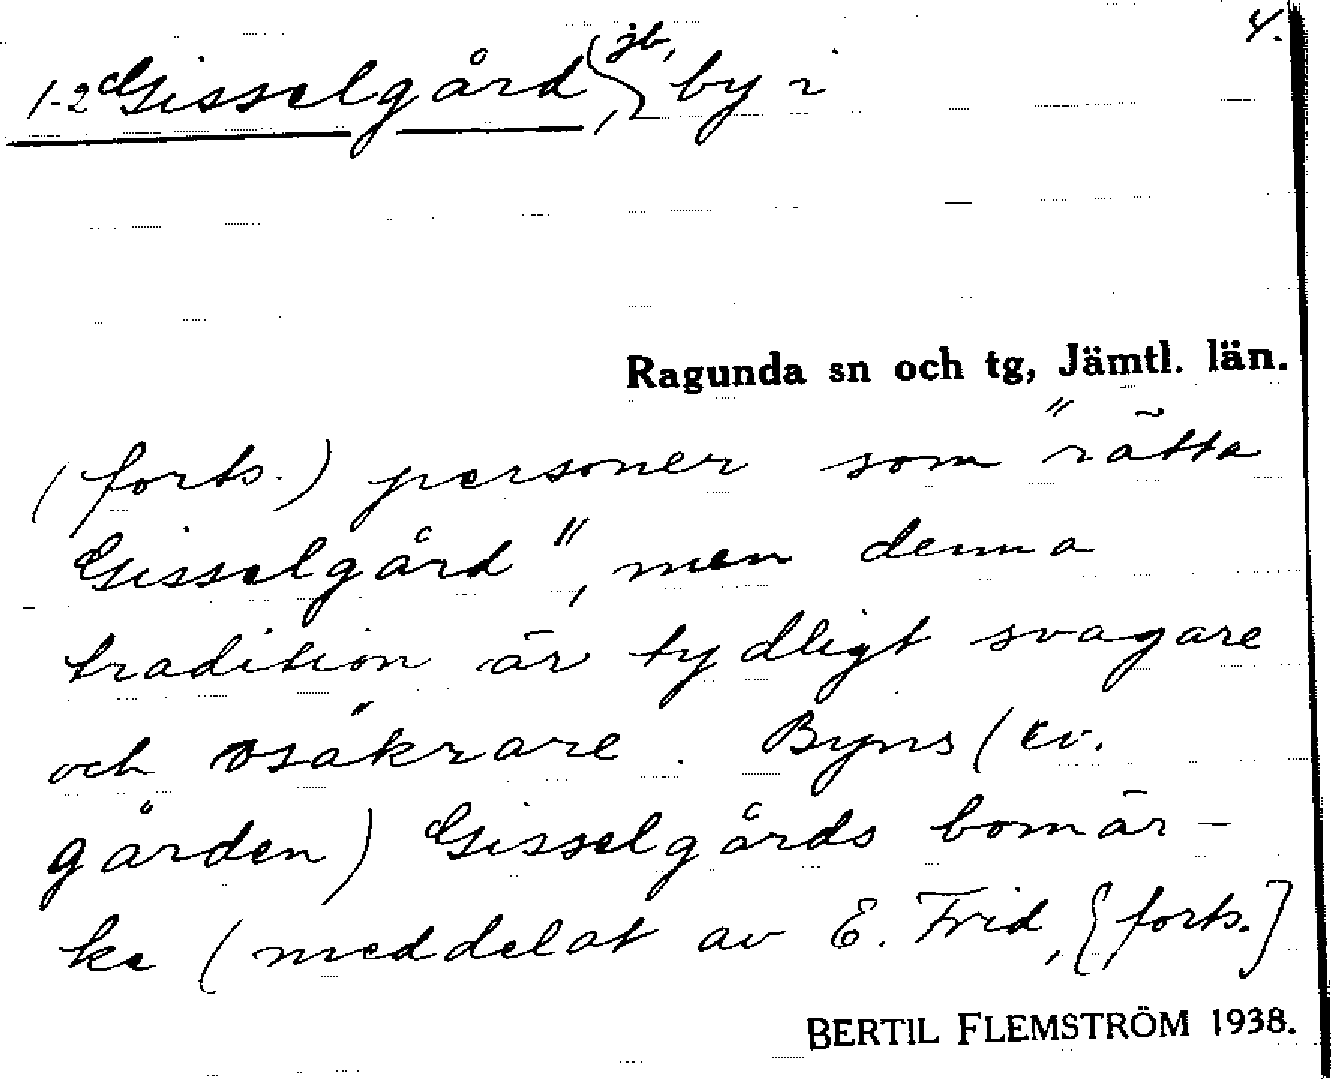 4.
1-2 Gisselgård, jb, by i
Ragunda sn och tg, Jämtl. län.
(forts.) personer som "rätta
Gisselgård", men denna
tradition är tydligt svagare
och osäkrare. Byns (ev.
gården) Gisselgårds bomär-
ke (meddelat av E. Frid, [forts.]
BERTIL FLEMSTRÖM 1938.